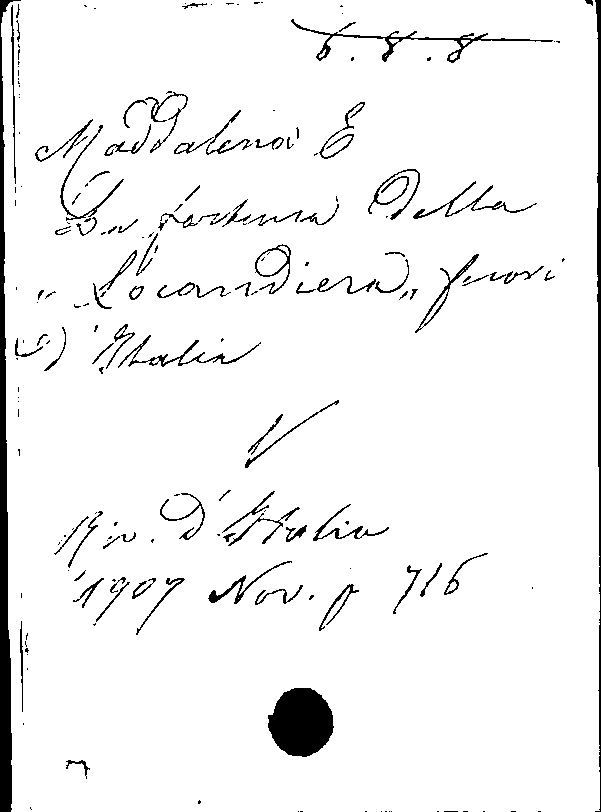 6.8.8
Maddalena E
La fortuna della
"Locandiera" fuori
d'Italia
V
Riv. d'Italia
1907 Nov. p 716